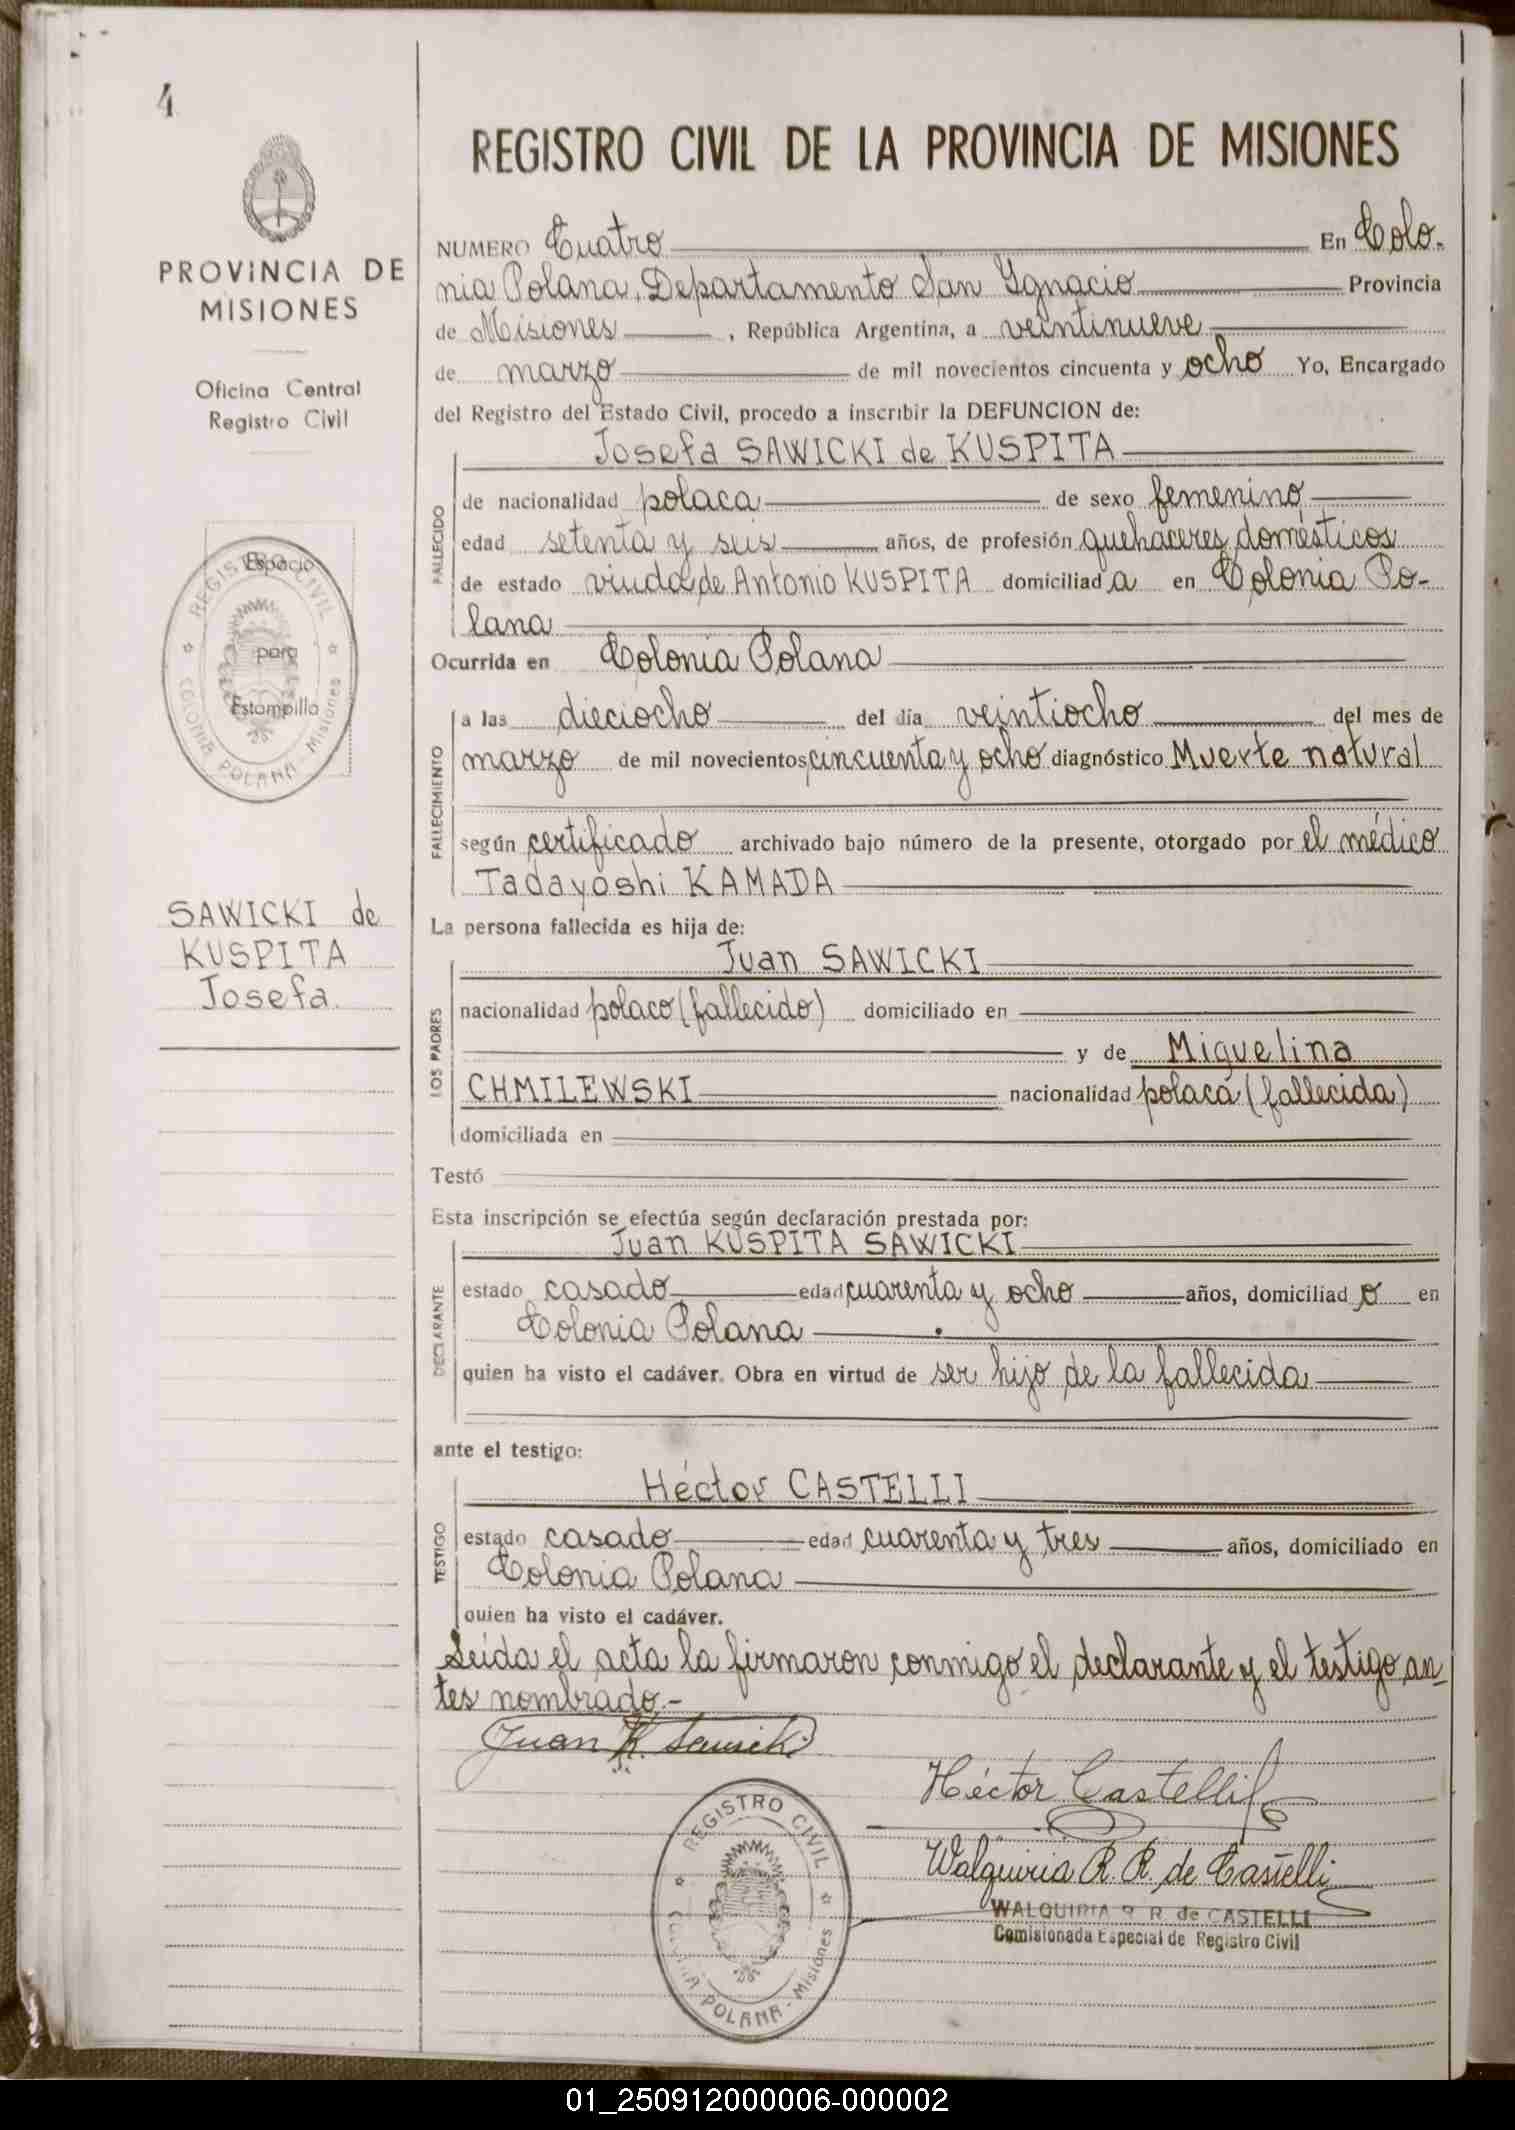 4
PROVINCIA DE
MISIONES
Oficina Central
Registro Civil
Espacio
para
Estampilla
REGISTRO CIVIL
COLONIA POLANA - Misiones
SAWICKI de
KUSPITA
Josefa.
REGISTRO CIVIL DE LA PROVINCIA DE MISIONES
NUMERO Cuatro En Colo-
nia Polana, Departamento San Ygnacio Provincia
de Misiones , República Argentina, a veintinueve
de marzo de mil novecientos cincuenta y ocho Yo, Encargado
del Registro del Estado Civil, procedo a inscribir la DEFUNCION de:
Josefa SAWICKI de KUSPITA
FALLECIDO
de nacionalidad polaca de sexo femenino
edad setenta y seis años, de profesión quehaceres domésticos
de estado viuda de Antonio KUSPITA domiciliad a en Colonia Po-
lana
Ocurrida en Colonia Polana
FALLECIMIENTO
a las dieciocho del día veintiocho del mes de
marzo de mil novecientos cincuenta y ocho diagnóstico Muerte natural
según certificado archivado bajo número de la presente, otorgado por el médico
Tadayoshi KAMADA
La persona fallecida es hija de:
Juan SAWICKI
LOS PADRES
nacionalidad polaco (fallecido) domiciliado en
y de Miguelina
CHMILEWSKI nacionalidad polaca (fallecida)
domiciliada en
Testó
Esta inscripción se efectúa según declaración prestada por:
Juan KUSPITA SAWICKI
DECLARANTE
estado casado edad cuarenta y ocho años, domiciliad o en
Colonia Polana
quien ha visto el cadáver. Obra en virtud de ser hijo de la fallecida
ante el testigo:
Héctor CASTELLI
TESTIGO
estado casado edad cuarenta y tres años, domiciliado en
Colonia Polana
quien ha visto el cadáver.
Leida el acta la firmaron conmigo el declarante y el testigo an-
tes nombrado.-
Juan K. Sawicki
Héctor Castelli
Walquiria R. R. de Castelli
WALQUIRIA R. R. de CASTELLI
Comisionada Especial de Registro Civil
REGISTRO CIVIL
COLONIA POLANA - Misiones
01_250912000006-000002